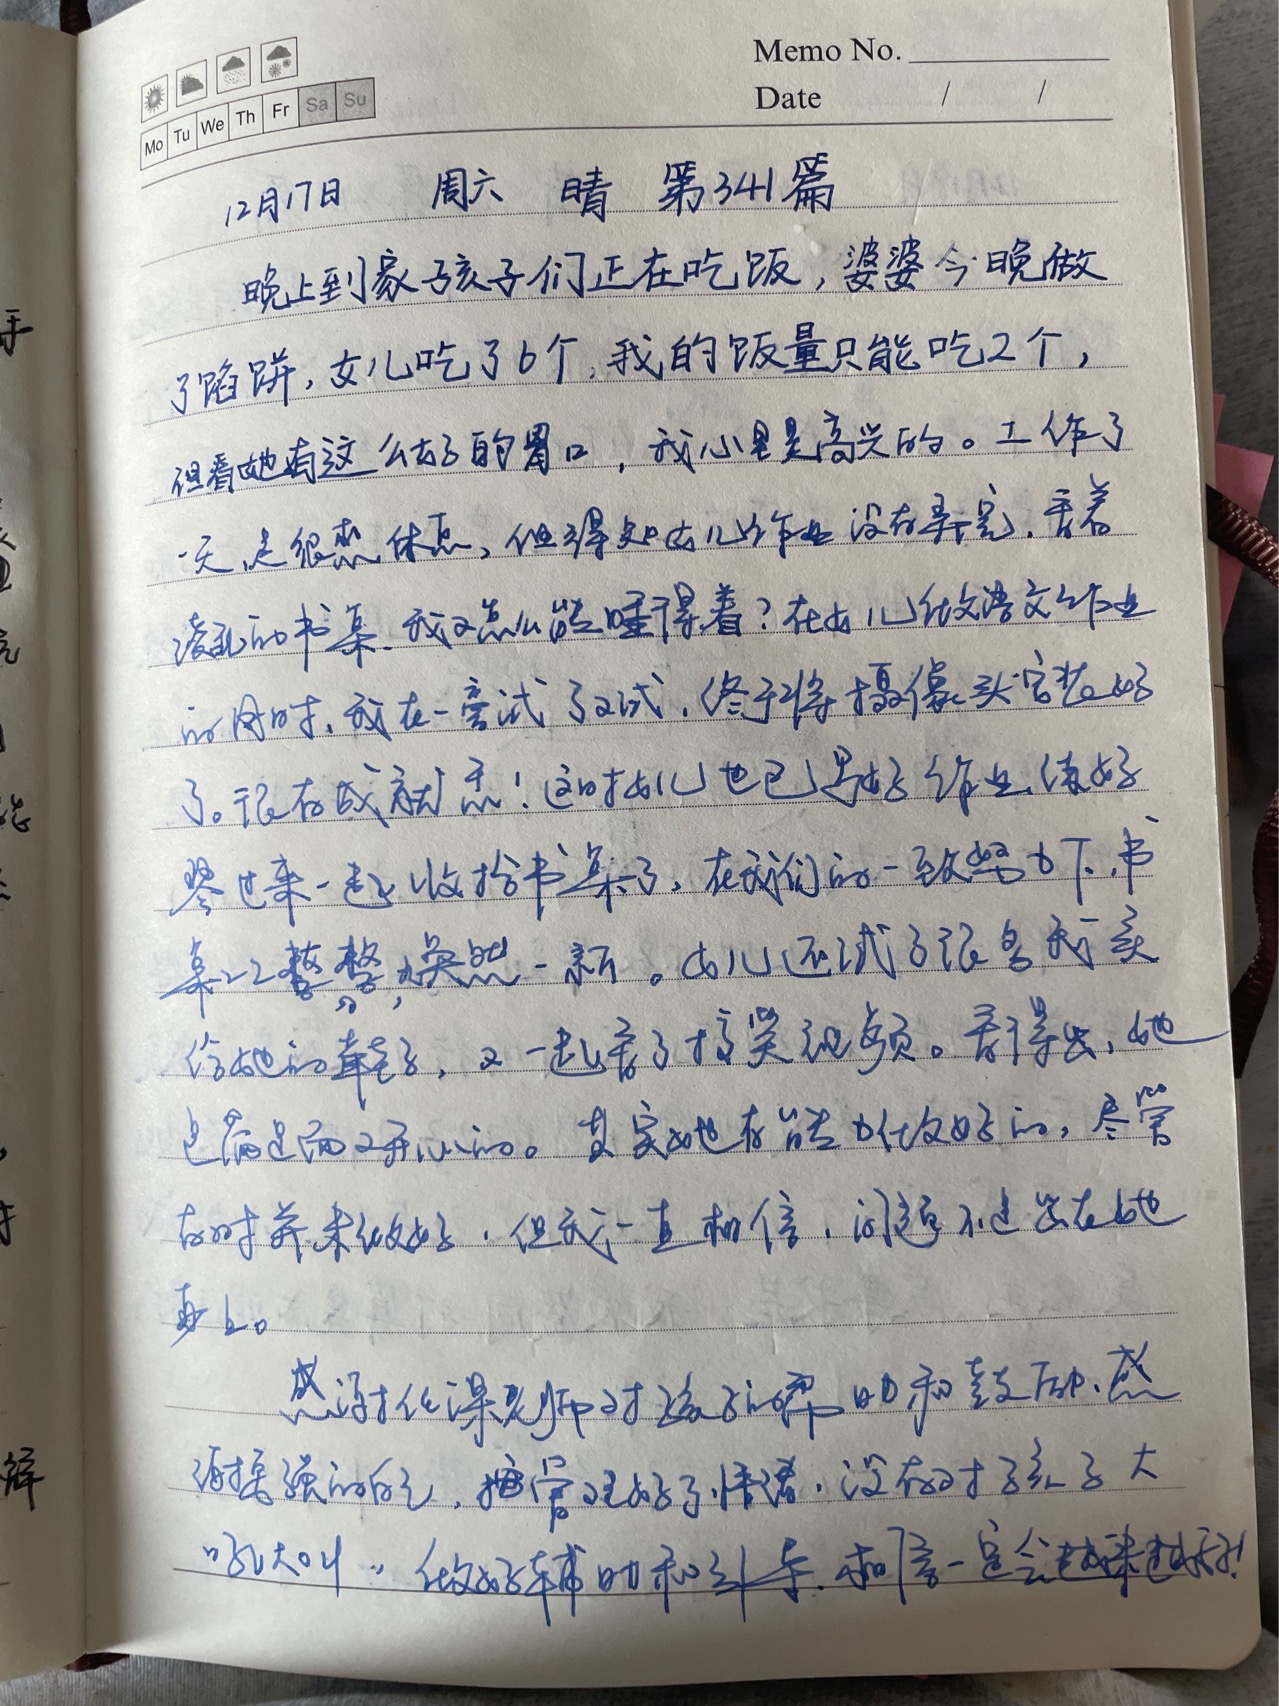 Memo No.
Date / /
Mo Tu We Th Fr Sa Su
12月17日 周六 晴 第341篇
晚上到家孩子们正在吃饭,婆婆今晚做
了馅饼,女儿吃了6个,我的饭量只能吃2个,
但看她有这么好的胃口,我心里是高兴的。工作了
一天,是很想休息,但得知女儿作业没有弄完,看着
凌乱的书桌,我又怎么能睡得着?在女儿做语文作业
的同时,我在一尝试了又试,终于将摄像头安装好
了。很有成就感!这时女儿也已写好作业,练好
琴过来一起收拾书桌了,在我们的一致努力下,书
桌工工整整,焕然一新。女儿还试了很多我买
给她的鞋子,又一起看了搞笑视频。看得出,她
是满足而又开心的。其实她有能力做好的,尽管
有时并未做好,但我一直相信,问题不是出在她
身上。
感谢任课老师对孩子的帮助和鼓励,感
谢坚强的自己,管理好了情绪,没有对孩子大
吼大叫,做好辅助和引导,相信一定会越来越好!
手
解